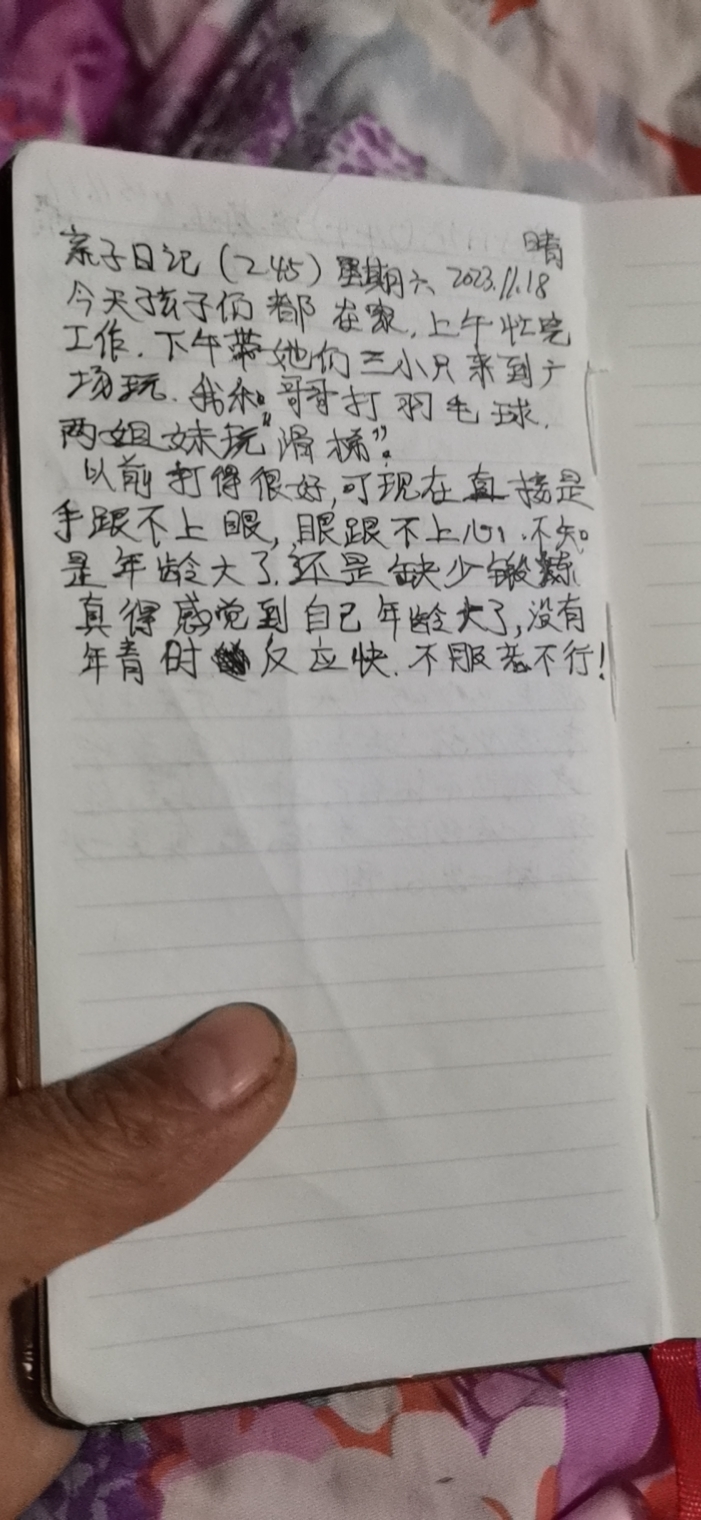 晴
亲子日记(245)星期六 2023.11.18
今天孩子们都在家,上午忙完
工作.下午带她们三小只来到广
场玩.我和哥哥打羽毛球.
两姐妹玩“滑梯”.
以前打得很好,可现在真接是
手跟不上眼,眼跟不上心,不知
是年龄大了.还是缺少锻炼
真得感觉到自己年龄大了,没有
年青时反应快.不服老不行!